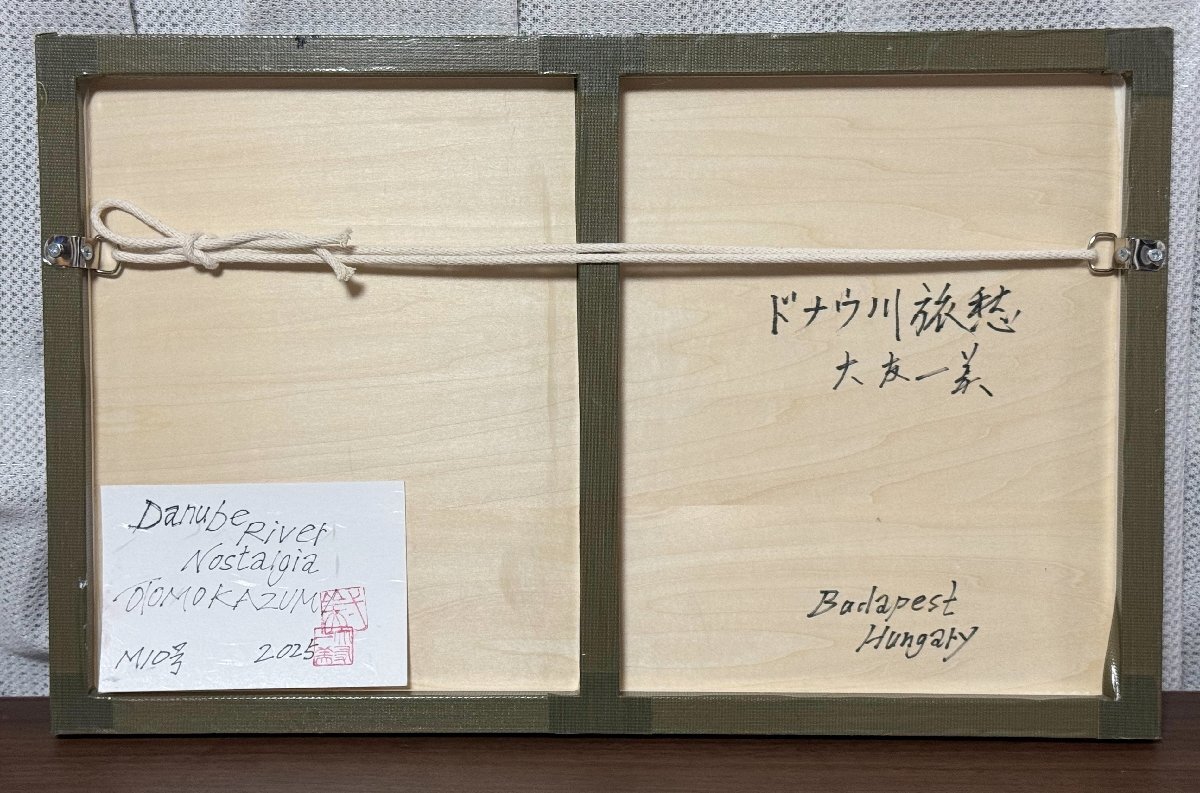 ドナウ川旅愁
大友一義
Danube
River
Nostalgia
OTOMOKAZUMI
M10号 2025
Budapest
Hungary